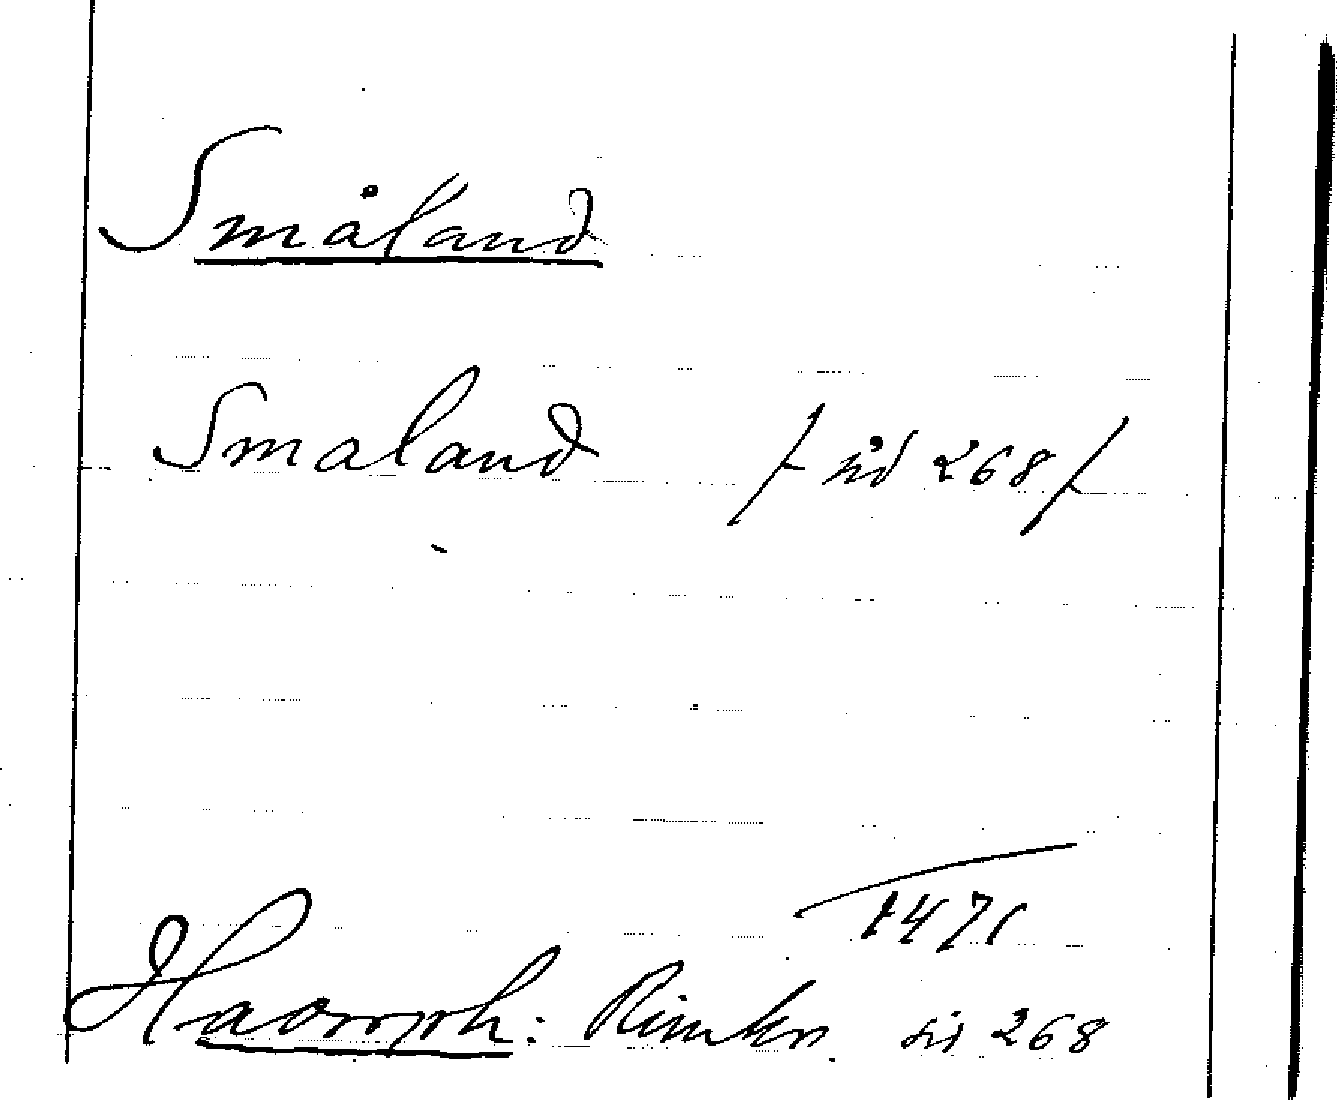 Småland
Smaland /sid 268/
1471
Hadorph: Rimkr. sid 268